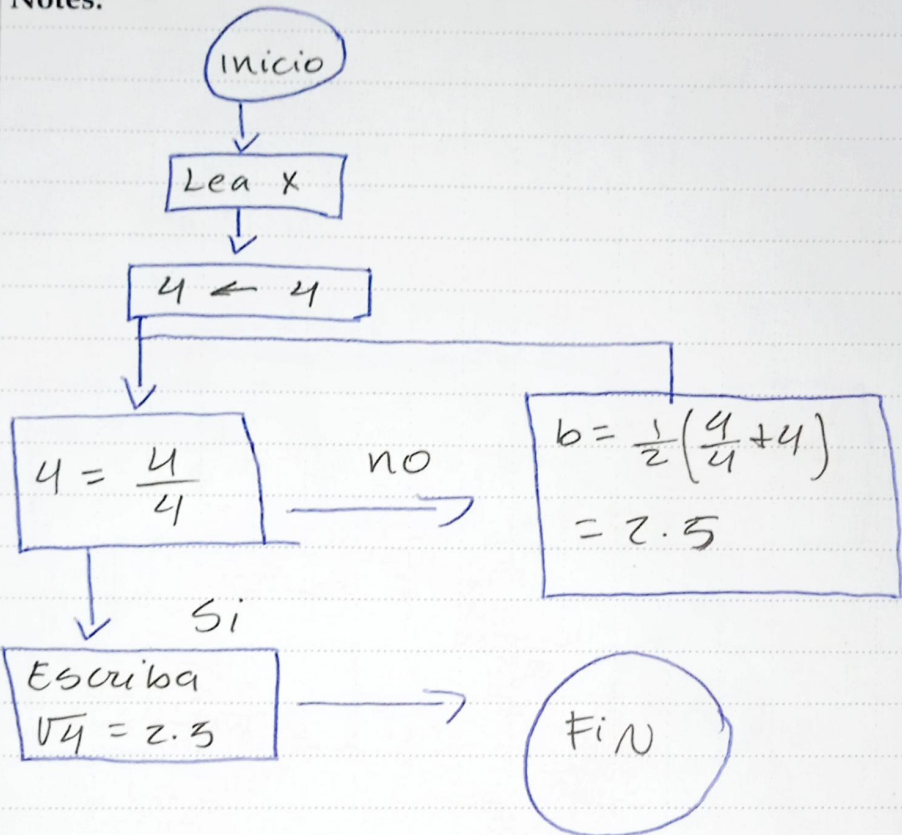 Notes:
Inicio
Lea x
4 ← 4
4 = 4/4
no
b = 1/2 (4/4 + 4)
= 2.5
Si
Escriba
√4 = 2.5
FiN